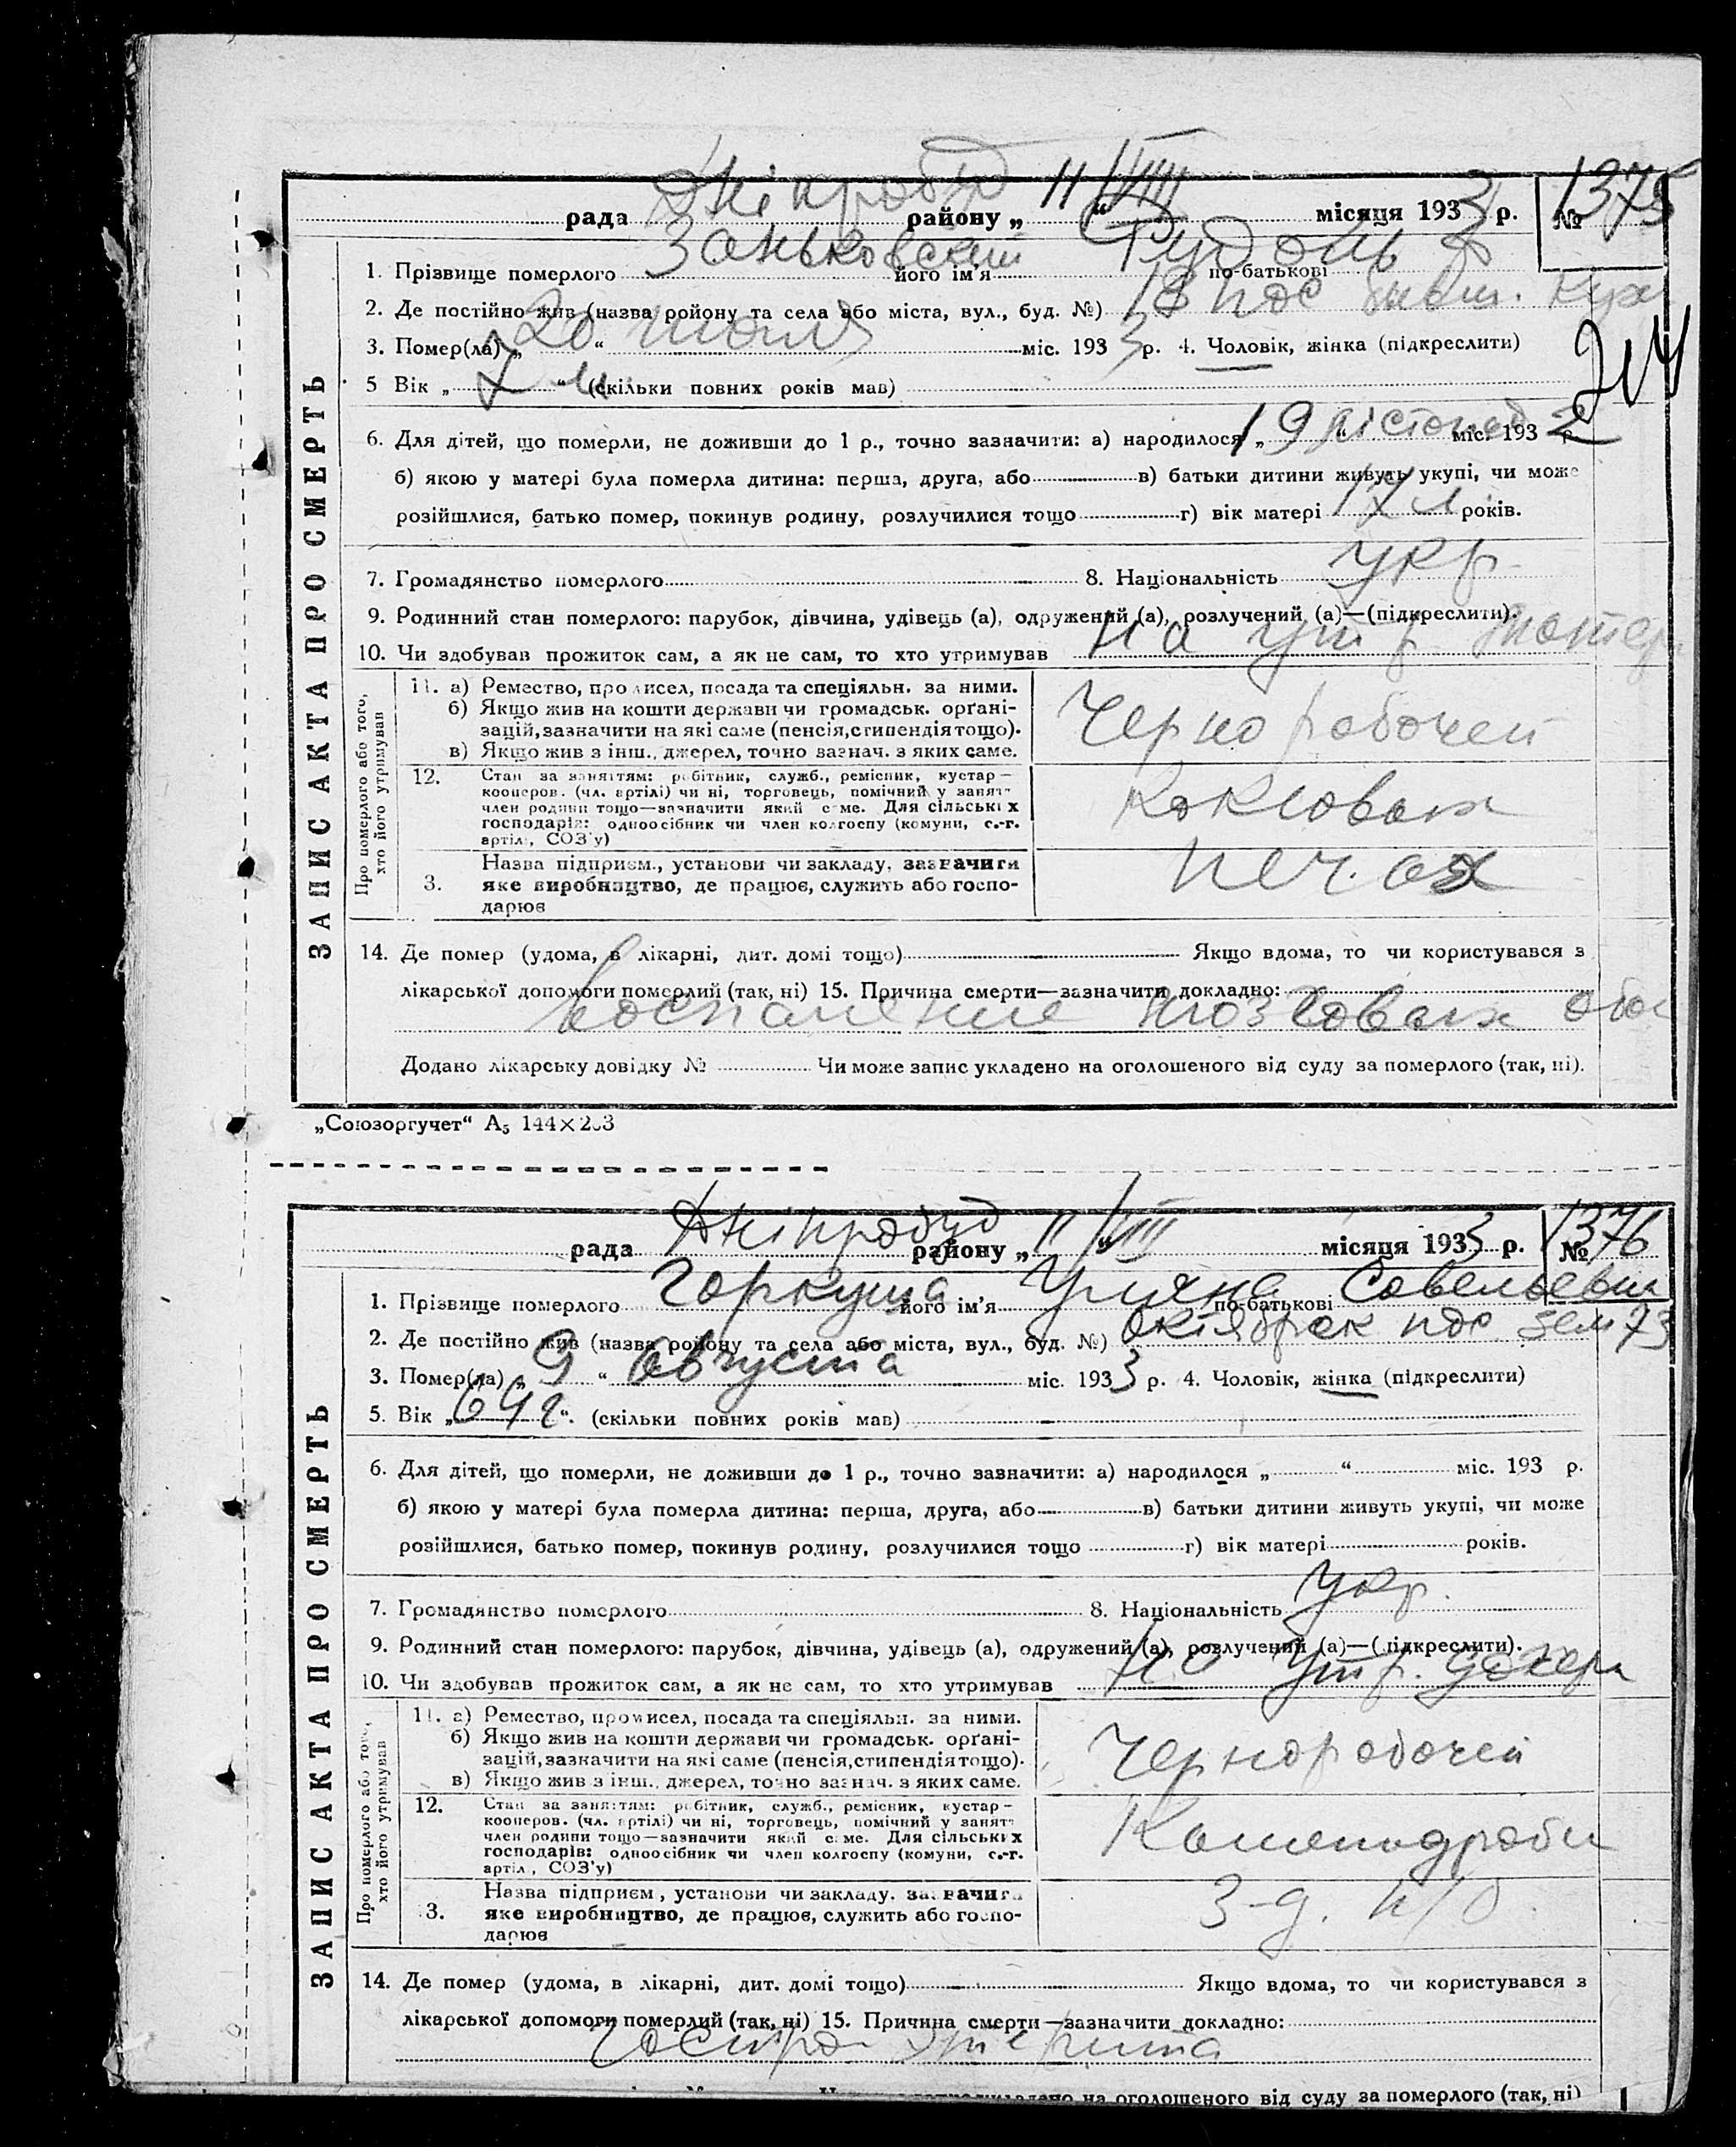 рада Дніпробуд району „ 11 “ VIII місяця 1933 р. № 1375
1. Прізвище померлого Заньковский його ім'я по-батькові
2. Де постійно жив (назва ройону та села або міста, вул., буд. №) 18 пос
3. Помер(ла) „ 20 “ июля міс. 1933 р. 4. Чоловік, жінка (підкреслити)
5 Вік „ “ (скільки повних років мав)
6. Для дітей, що померли, не доживши до 1 р., точно зазначити: а) народилося „ 19 “ листопад міс. 1932 р.
б) якою у матері була померла дитина: перша, друга, або в) батьки дитини живуть укупі, чи може
розійшлися, батько помер, покинув родину, розлучилися тощо г) вік матері років.
7. Громадянство померлого 8. Національність укр
9. Родинний стан померлого: парубок, дівчина, удівець (а), одружений (а), розлучений (а)—(підкреслити).
10. Чи здобував прожиток сам, а як не сам, то хто утримував на утр. матер
ЗАПИС АКТА ПРО СМЕРТЬ
Про померлого або того,
хто його утримував
11. а) Ремество, промисел, посада та спеціяльн. за ними.
б) Якщо жив на кошти держави чи громадськ. орґані-
зацій, зазначити на які саме (пенсія, стипендія тощо).
в) Якщо жив з інш. джерел, точно зазнач. з яких саме.
Чернорабочей
12. Стан за заняттям: робітник, служб., ремісник, кустар—
кооперов. (чл. артілі) чи ні, торговець, помічний у занятт
член родини тощо—зазначити який саме. Для сільських
господарів: одноосібник чи член колгоспу (комуни, с.-г.
артіл., СОЗ'у)
Коксовых
3. Назва підприєм., установи чи закладу, зазначити
яке виробництво, де працює, служить або госпо-
дарює
печах
14. Де помер (удома, в лікарні, дит. домі тощо) Якщо вдома, то чи користувався з
лікарської допомоги померлий (так, ні) 15. Причина смерти—зазначити докладно:
Воспаление мозговых обол
Додано лікарську довідку № Чи може запис укладено на оголошеного від суду за померлого (так, ні).
„Союзоргучет“ А5 144×203
рада Дніпробуд району „ 11 “ VIII місяця 1933 р. № 1376
1. Прізвище померлого Горкуша його ім'я Уляна по-батькові Савельевн
2. Де постійно жив (назва ройону та села або міста, вул., буд. №) Октябрск пос зем 73
3. Помер(ла) „ 9 “ августа міс. 1933 р. 4. Чоловік, жінка (підкреслити)
5. Вік „ 64 г “. (скільки повних років мав)
6. Для дітей, що померли, не доживши до 1 р., точно зазначити: а) народилося „ “ міс. 193 р.
б) якою у матері була померла дитина: перша, друга, або в) батьки дитини живуть укупі, чи може
розійшлися, батько помер, покинув родину, розлучилися тощо г) вік матері років.
7. Громадянство померлого 8. Національність укр.
9. Родинний стан померлого: парубок, дівчина, удівець (а), одружений (а), розлучений (а)—(підкреслити).
10. Чи здобував прожиток сам, а як не сам, то хто утримував на утр. дочери
ЗАПИС АКТА ПРО СМЕРТЬ
Про померлого або того,
хто його утримував
11. а) Ремество, промисел, посада та спеціяльн. за ними.
б) Якщо жив на кошти держави чи громадськ. орґані-
зацій, зазначити на які саме (пенсія, стипендія тощо).
в) Якщо жив з інш. джерел, точно зазнач. з яких саме.
Чернорабочей
12. Стан за заняттям: робітник, служб., ремісник, кустар—
кооперов. (чл. артілі) чи ні, торговець, помічний у занятт
член родини тощо—зазначити який саме. Для сільських
господарів: одноосібник чи член колгоспу (комуни, с.-г.
артіл., СОЗ'у)
Каменодроби
3. Назва підприєм., установи чи закладу, зазначити
яке виробництво, де працює, служить або госпо-
дарює
3-д.
14. Де помер (удома, в лікарні, дит. домі тощо) Якщо вдома, то чи користувався з
лікарської допомоги померлий (так, ні) 15. Причина смерти—зазначити докладно:
Гастро энтерита
на оголошеного від суду за померлого (так, ні)